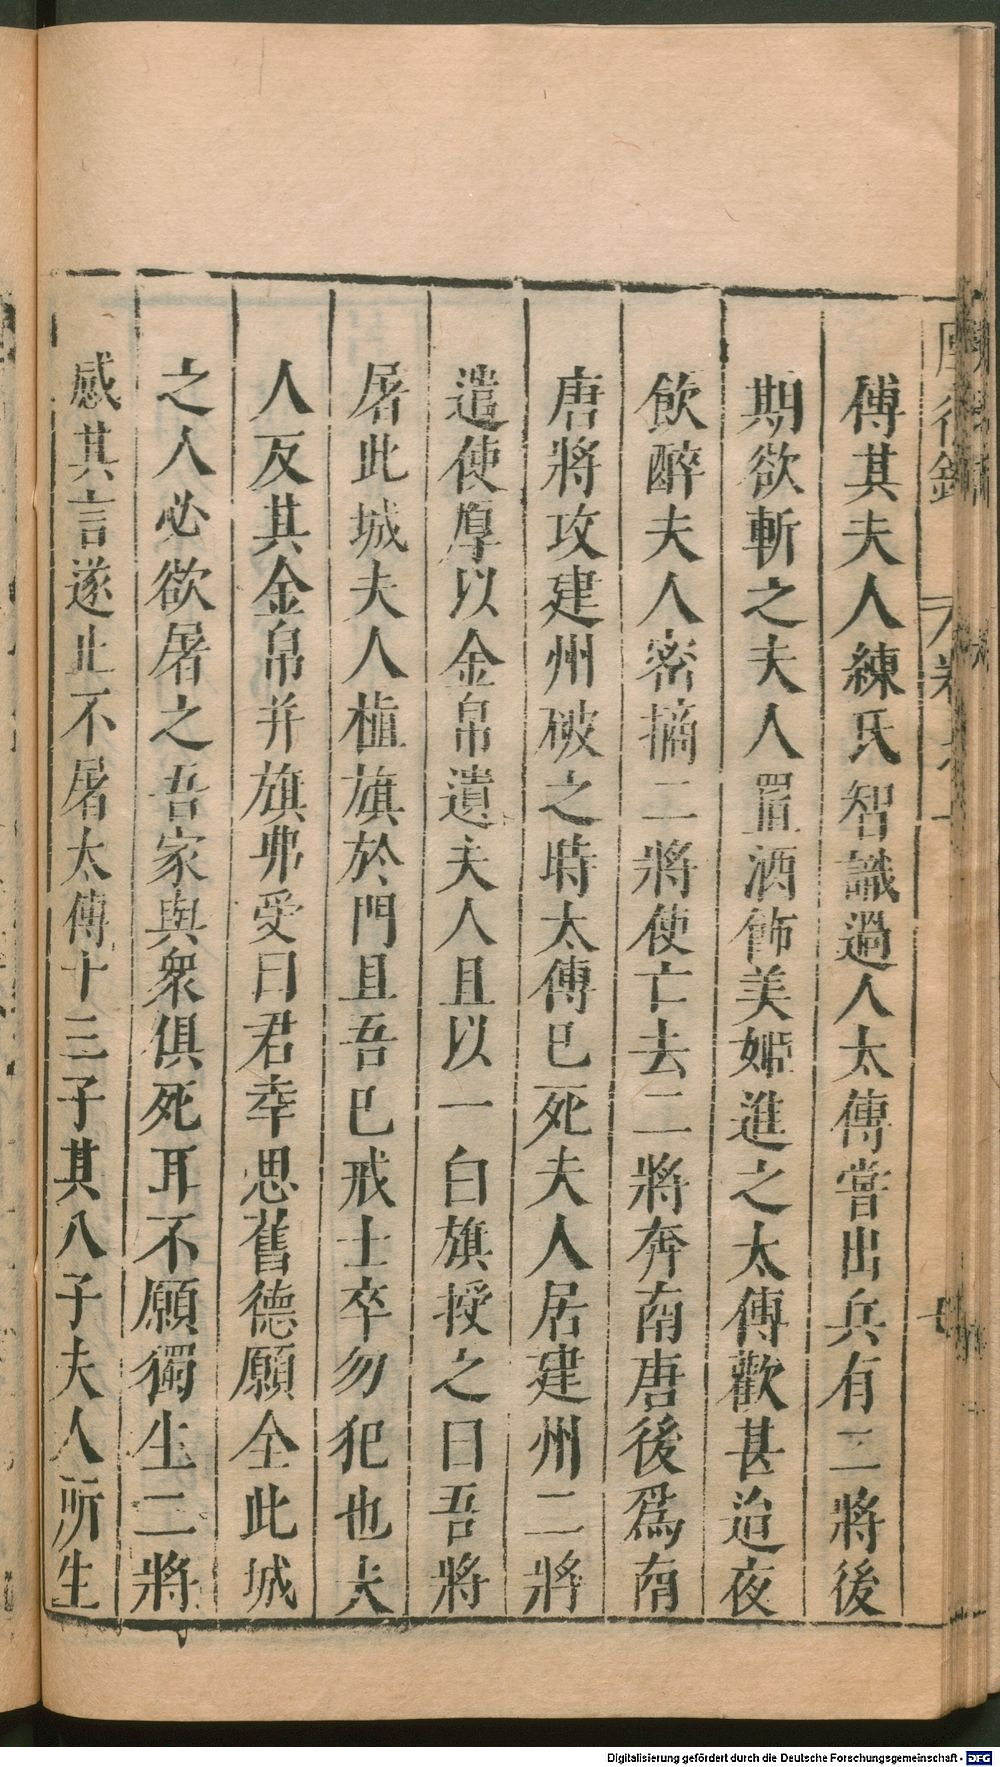 傅其夫人練氏智識過人太傅嘗出兵有二將後
期欲斬之夫人置酒飾美姬進之太傅歡甚迨夜
飲醉夫人密摘二將使亡去二將奔南唐後爲南
唐將攻建州破之時太傅已死夫人居建州二將
遣使厚以金帛遺夫人且以一白旗授之曰吾將
屠此城夫人植旗於門且吾已戒士卒勿犯也夫
人反其金帛并旗弗受曰君幸思舊德願全此城
之人必欲屠之吾家與衆俱死耳不願獨生二將
感其言遂止不屠太傅十三子其八子夫人所生
Digitalisierung gefördert durch die Deutsche Forschungsgemeinschaft - DFG